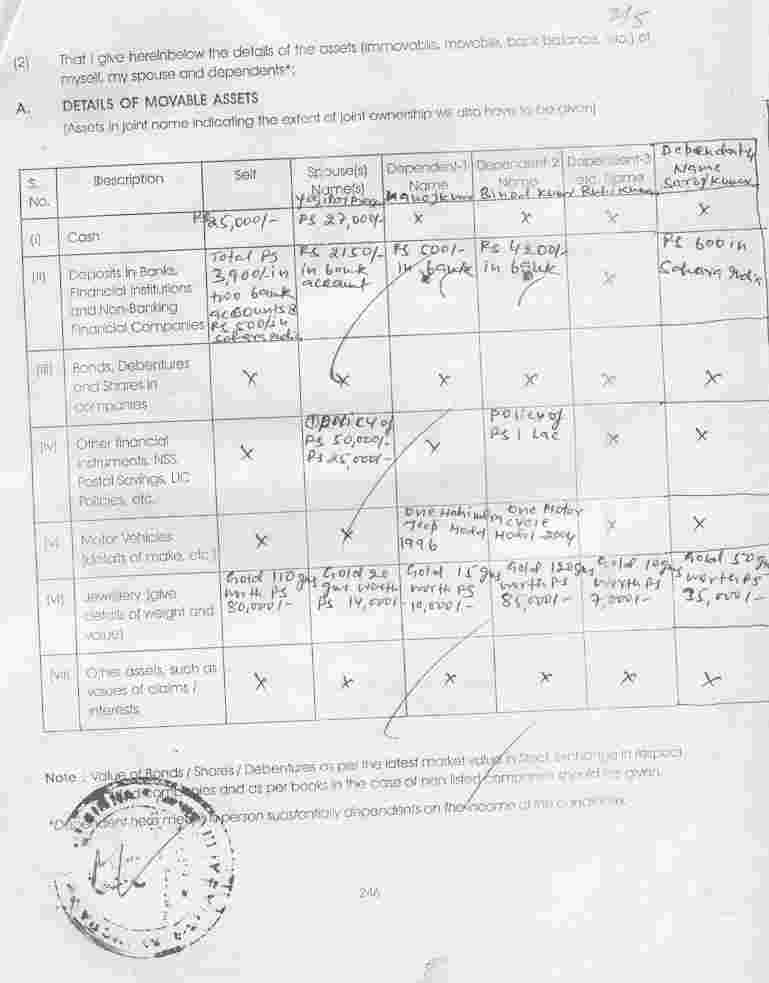 2/5
(2) That I give hereinbelow the details of the assets (immovable, movable, bank balance, etc.) of
myself, my spouse and dependents*:
A. DETAILS OF MOVABLE ASSETS
(Assets in joint name indicating the extent of joint ownership will also have to be given)
S. No. Description Self Spouse(s) Name(s) Dependent-1 Name Dependent-2 Name Dependent-3 etc. Name Dependent-4 Name
(i) Cash Rs 25,000/- Rs 27,000/- x x x x
(ii) Deposits in Banks,
Financial Institutions
and Non-Banking
Financial Companies
Total Rs
3,900/- in
two bank
accounts &
Rs 500/- in
Sahara India
Rs 2150/-
in bank
account
Rs 500/-
in bank
Rs 4200/-
in bank
x
Rs 600 in
Sahara India
(iii) Bonds, Debentures
and Shares in
companies
x x x x x x
(iv) Other financial
instruments, NSS,
Postal Savings, LIC
Policies, etc.
x
① policy of
Rs 50,000/-
Rs 25,000/-
x
policy of
Rs 1 Lac
x x
(v) Motor Vehicles
(details of make, etc.)
x x
one Mahindra
Jeep Model
1996
one Motor
cycle
Model 2004
x x
(vi) Jewellery (give
details of weight and
value)
Gold 110 gms
worth Rs
80,000/-
Gold 20
gms worth
Rs 14,000/-
Gold 15 gms
worth Rs
10,000/-
Gold 120 gms
worth Rs
85,000/-
Gold 10 gms
worth Rs
7,000/-
Gold 50 gms
worth Rs
35,000/-
(vii) Other assets, such as
values of claims /
interests
x x x x x x
Note : Value of Bonds / Shares / Debentures as per the latest market value in Stock Exchange in respect
companies and as per books in the case of non listed companies should be given.
*Dependent here means a person substantially dependents on the income of the candidate.
246